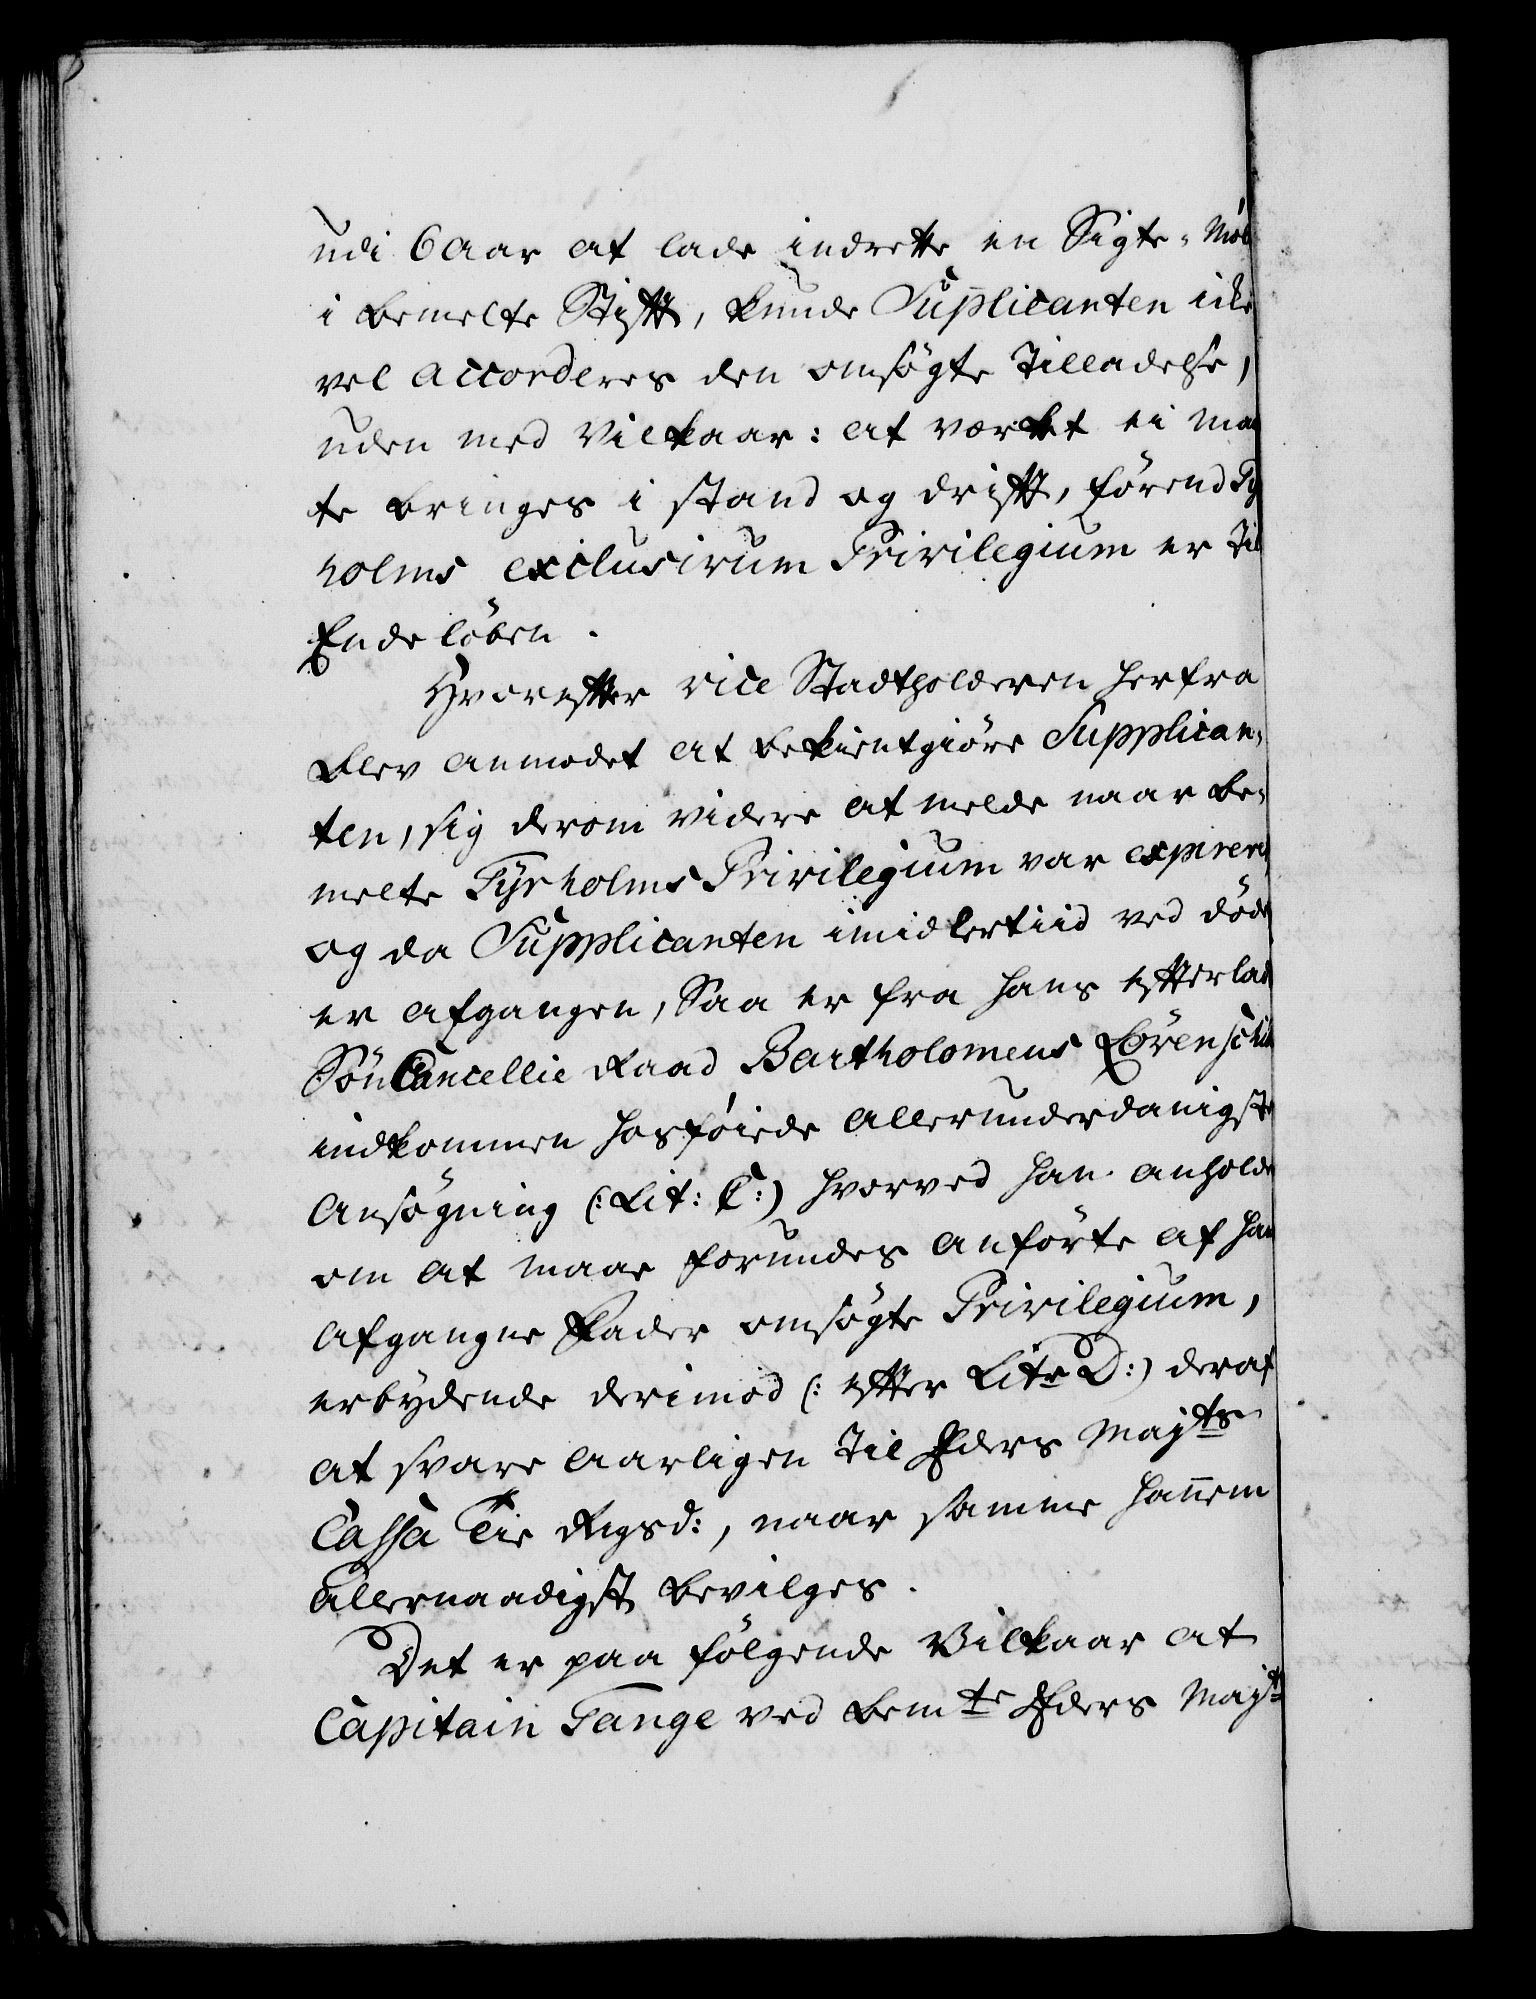 udi 6 Aar at lade indrette en Sigte-Møl
i bemelte Stifft, kunde Suplicanten icke
vel accorderes den omsøgte Tilladelse,
uden med Vilkaar: at værket ei maa
te bringes i stand og drifft, førend Ty
holms exclusivum Privilegium er til
Ende løben.
Hvorefter vice Stadtholderen herfra
blev anmodet at bekientgiøre Supplican-
ten, sig derom videre at melde naar be-
melte Tyrholms Privilegium var expirer
og da Supplicanten imidlertiid ved døde
er afgangen, Saa er fra hans effterlad
Søn Cancellie Raad Bartholomeus
indkommen hosføiede allerunderdanigste
Ansøgning (: Lit: C:) hvorved han anholder
om at maae forundes anførte af han
afgangne Fader omsøgte Privilegium,
erbydende derimod (: effter Litr D:) deraf
at svare aarligen til Eders Mayts
Cassa Tie Rigsd:, naar samme hannem
allernaadigst bevilges.
Det er paa følgende Vilkaar at
Capitain Tange ved bemte Eders Mayts